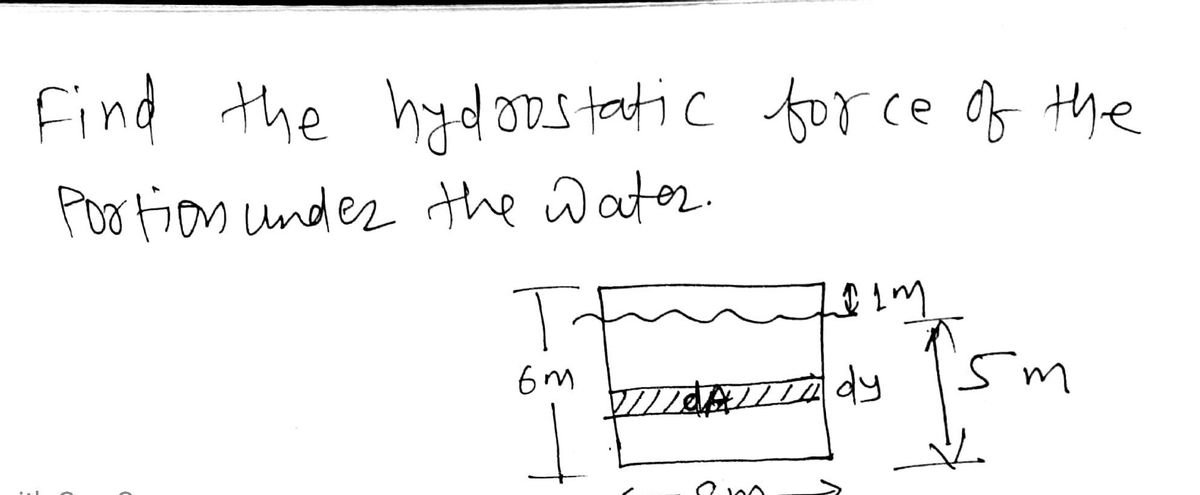 Find the hydrostatic force of the
Portion under the water.
1m
6m
dA
dy
5m